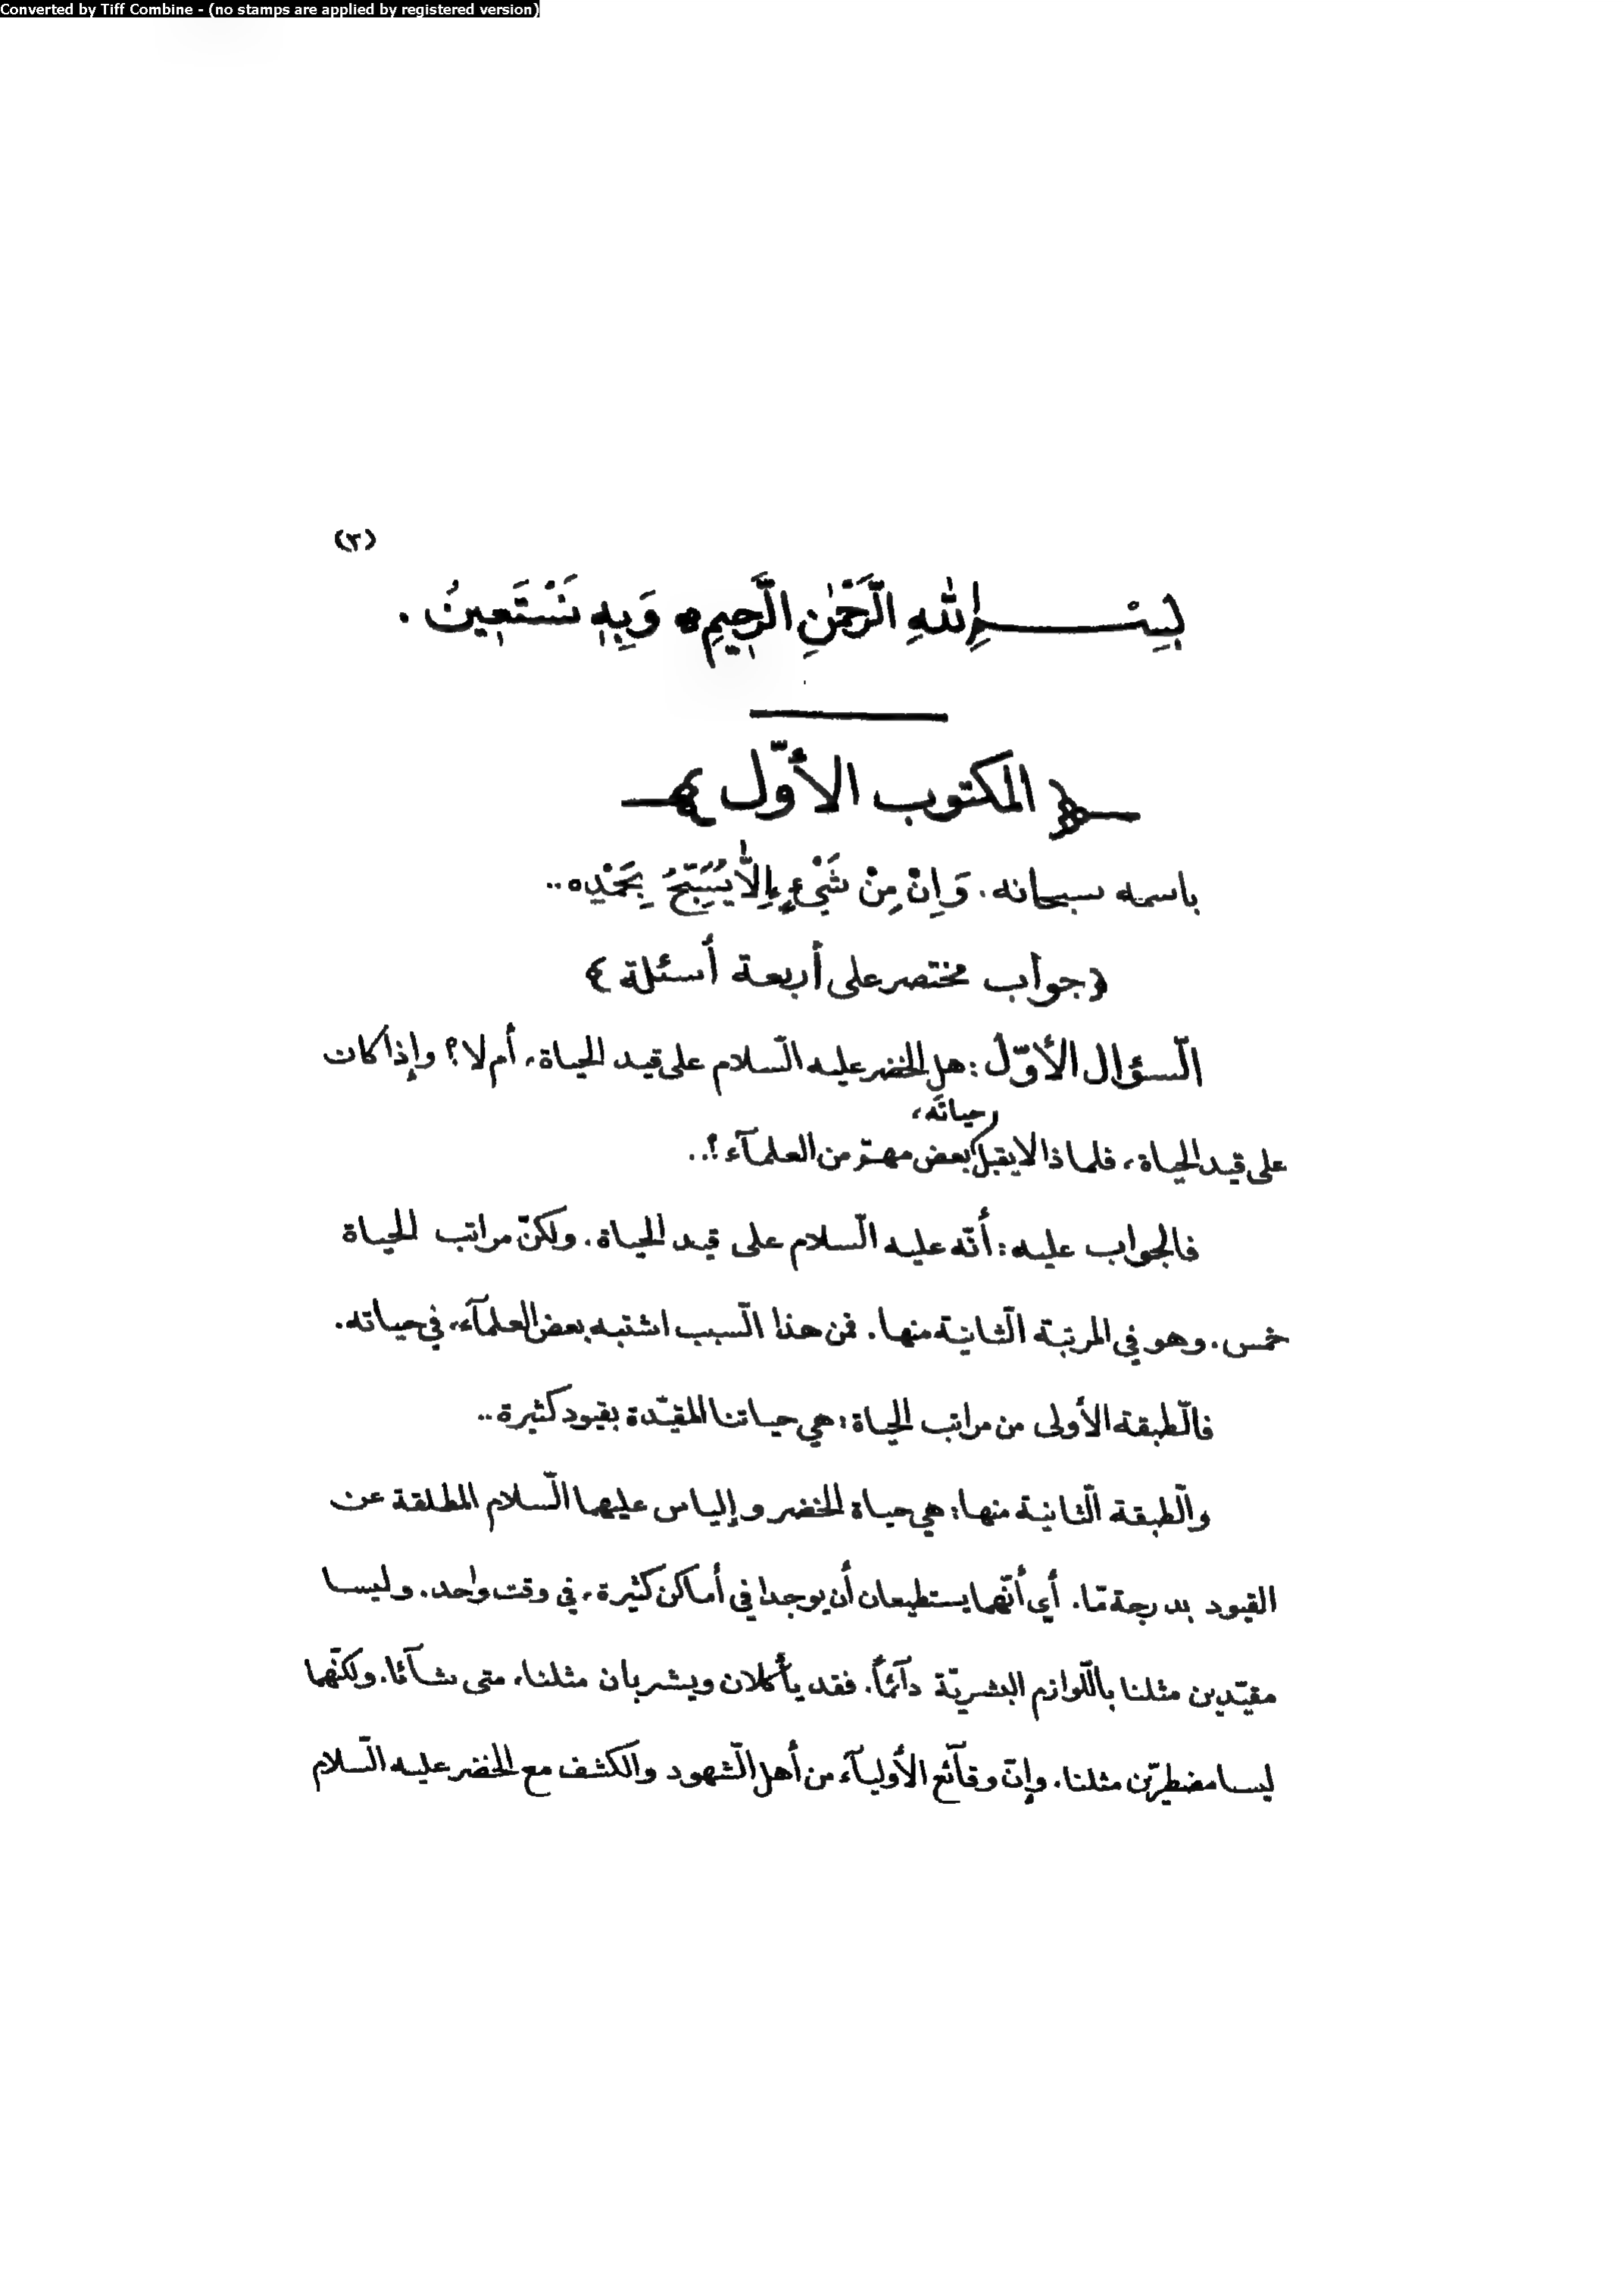 Converted by Tiff Combine - (no stamps are applied by registered version)
(٣)
بِسْـــــــمِ اللهِ الرَّحْمٰنِ الرَّحِيمِ ه وَبِهِ نَسْتَعِينُ .
﴿ المكتوب الأوّل ﴾
باسمه سبحانه. وَاِنْ مِنْ شَيْءٍ اِلَّا يُسَبِّحُ بِحَمْدِه..
﴿ جواب مختصر على أربعة أسئلة ﴾
السّؤال الأوّل : هل الخضر عليه السّلام على قيد الحياة، أم لا؟ وإذا كان
حياته،
على قيد الحياة، فلماذا لايقبل بعض مهمّ من العلمآء ؟..
فالجواب عليه : أنّه عليه السّلام على قيد الحياة. ولكنّ مراتب الحياة
خمس. وهو في المرتبة الثّانية منها. فمن هذا السّبب اشتبه بعض العلمآء، في حياته.
فالطّبقة الأولى من مراتب الحياة : هي حياتنا المقيّدة بقيود كثيرة..
والطّبقة الثّانية منها : هي حياة الخضر وإلياس عليهما السّلام المطلقة عن
القيود بدرجة مّا. أي أنّهما يستطيعان أن يوجدا في أماكن كثيرة، في وقت واحد. وليسا
مقيّدين مثلنا باللّوازم البشريّة دآئماً. فقد يأكلان ويشربان مثلنا، متى شآئا. ولكنّهما
ليسا مضطرّين مثلنا. وإنّ وقآئع الأوليآء من أهل الشّهود والكشف مع الخضر عليه السّلام